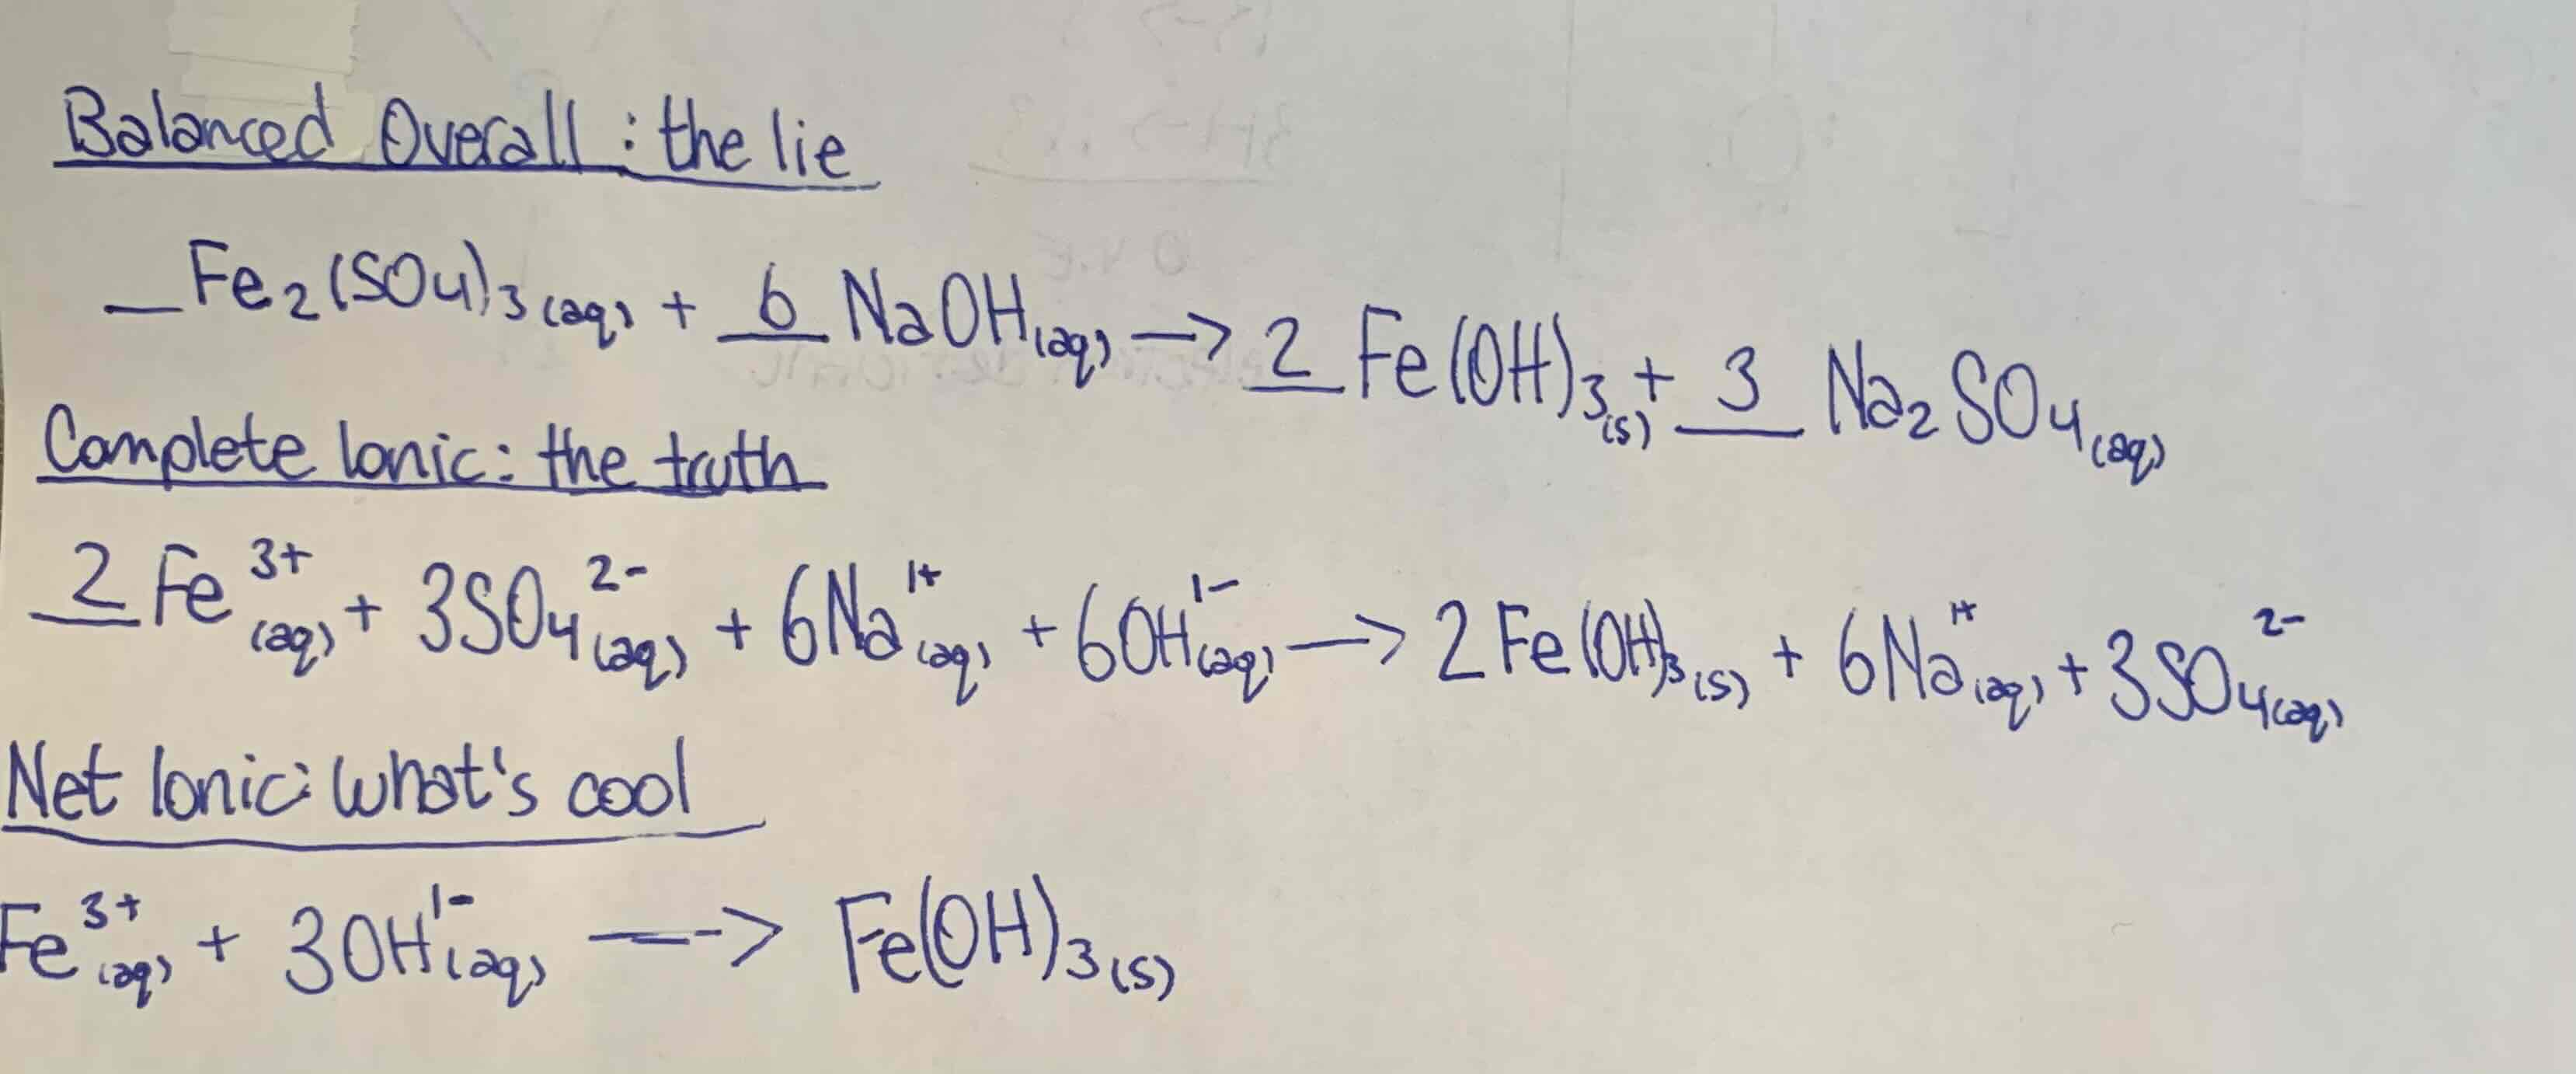 Balanced Overall: the lie
_Fe₂(SO₄)₃(aq) + 6 NaOH(aq) —> 2 Fe(OH)₃(s) + 3 Na₂SO₄(aq)
Complete Ionic: the truth
2 Fe³⁺(aq) + 3SO₄²⁻(aq) + 6Na¹⁺(aq) + 6OH¹⁻(aq) —> 2Fe(OH)₃(s) + 6Na¹⁺(aq) + 3SO₄²⁻(aq)
Net Ionic: what's cool
Fe³⁺(aq) + 3OH¹⁻(aq) —> Fe(OH)₃(s)